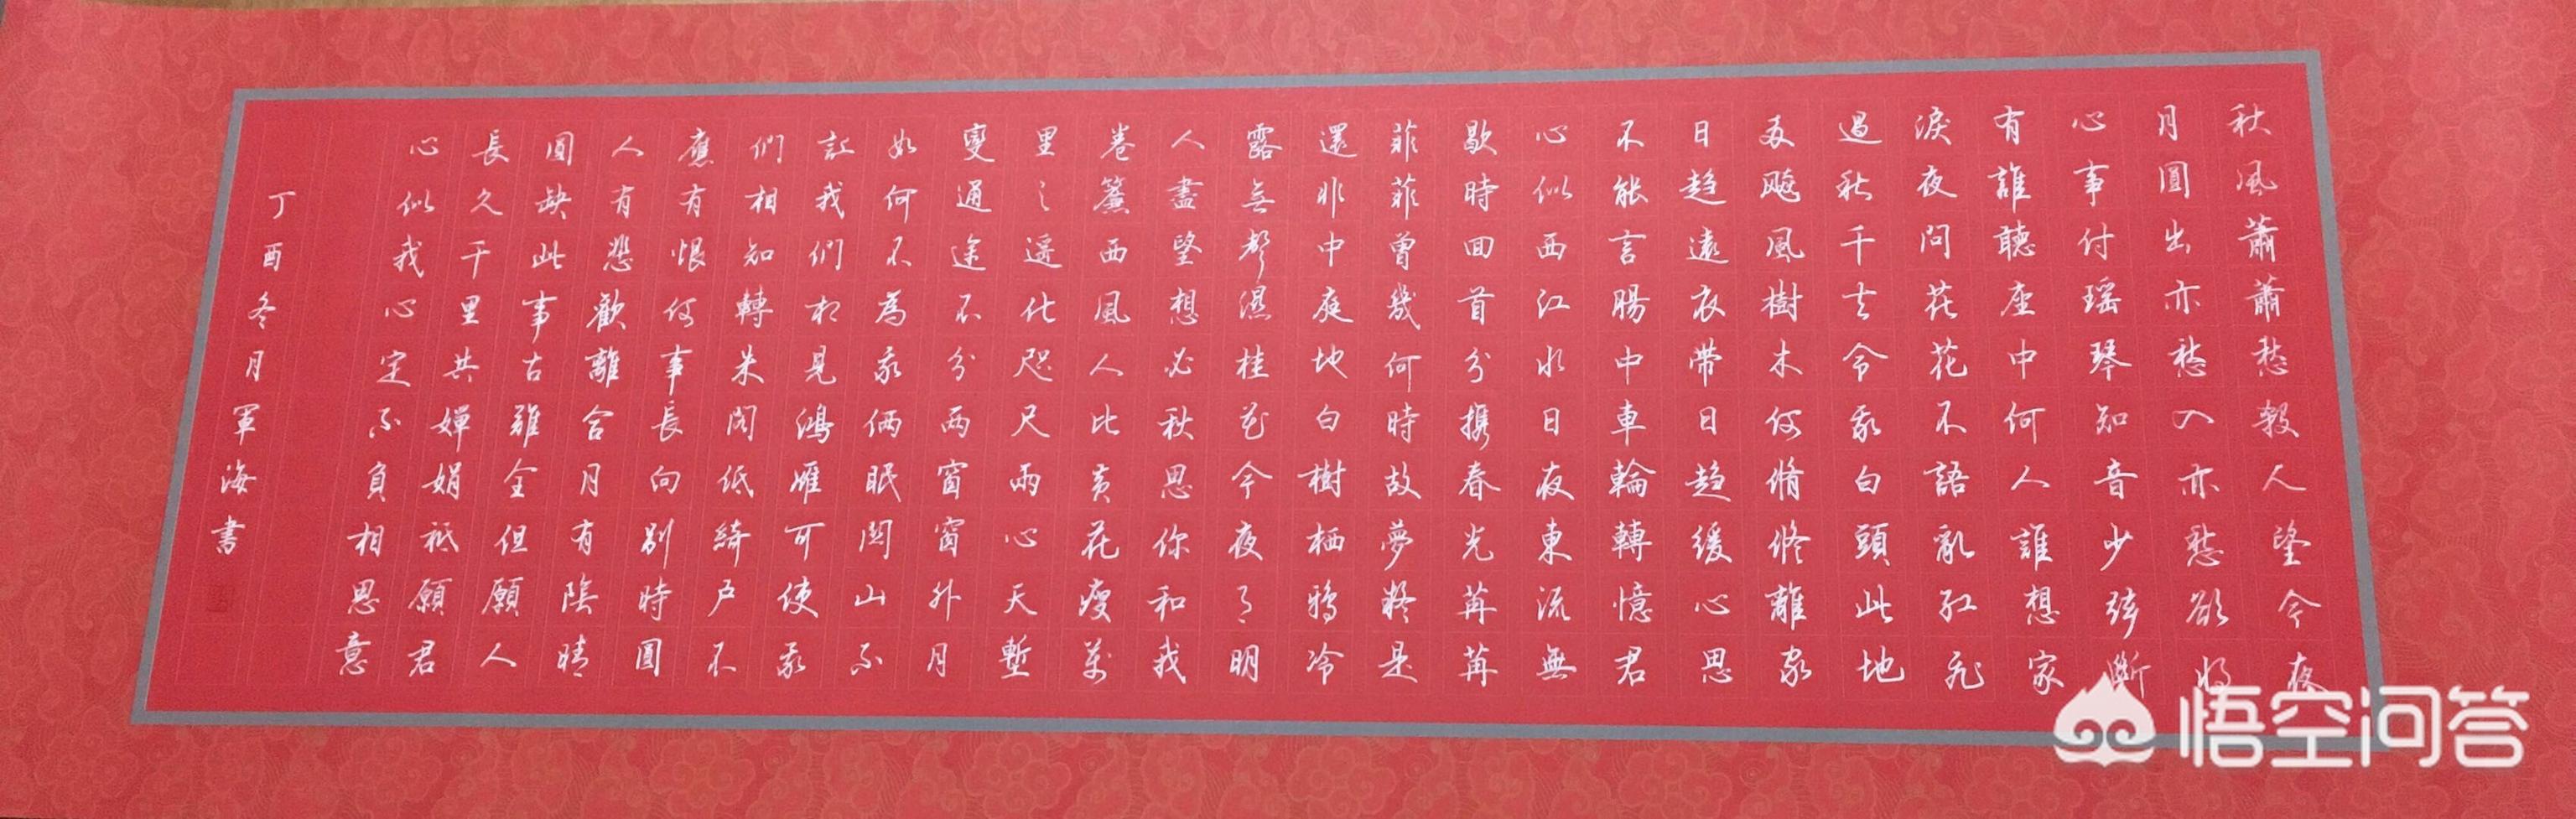 秋風蕭蕭愁殺人望今夜
月圓出亦愁入亦愁欲將
心事付瑶琴知音少弦斷
有誰聽座中何人誰想家
淚夜問花花不語亂紅飛
過秋千去令我白頭此地
多飚風樹木何脩脩離家
日趋遠衣帶日趋緩心思
不能言腸中車輪轉憶君
心似西江水日夜東流無
歇時回首分攜春光苒苒
菲菲曾幾何時故夢疑是
還非中庭地白樹栖鴉冷
露無聲濕桂花今夜月明
人盡望想必秋思你和我
卷簾西風人比黃花瘦萬
里之遥化咫尺兩心天塹
變通途不分兩窗窗外月
如何不為我倆眠関山不
我們相見鴻雁可使我
們相知轉朱閣低綺户不
應有恨何事長向别時圓
人有悲歡離合月有陰晴
圓缺此事古難全但願人
長久千里共嬋娟祗願君
心似我心定不負相思意
丁酉冬月軍海書
悟空问答